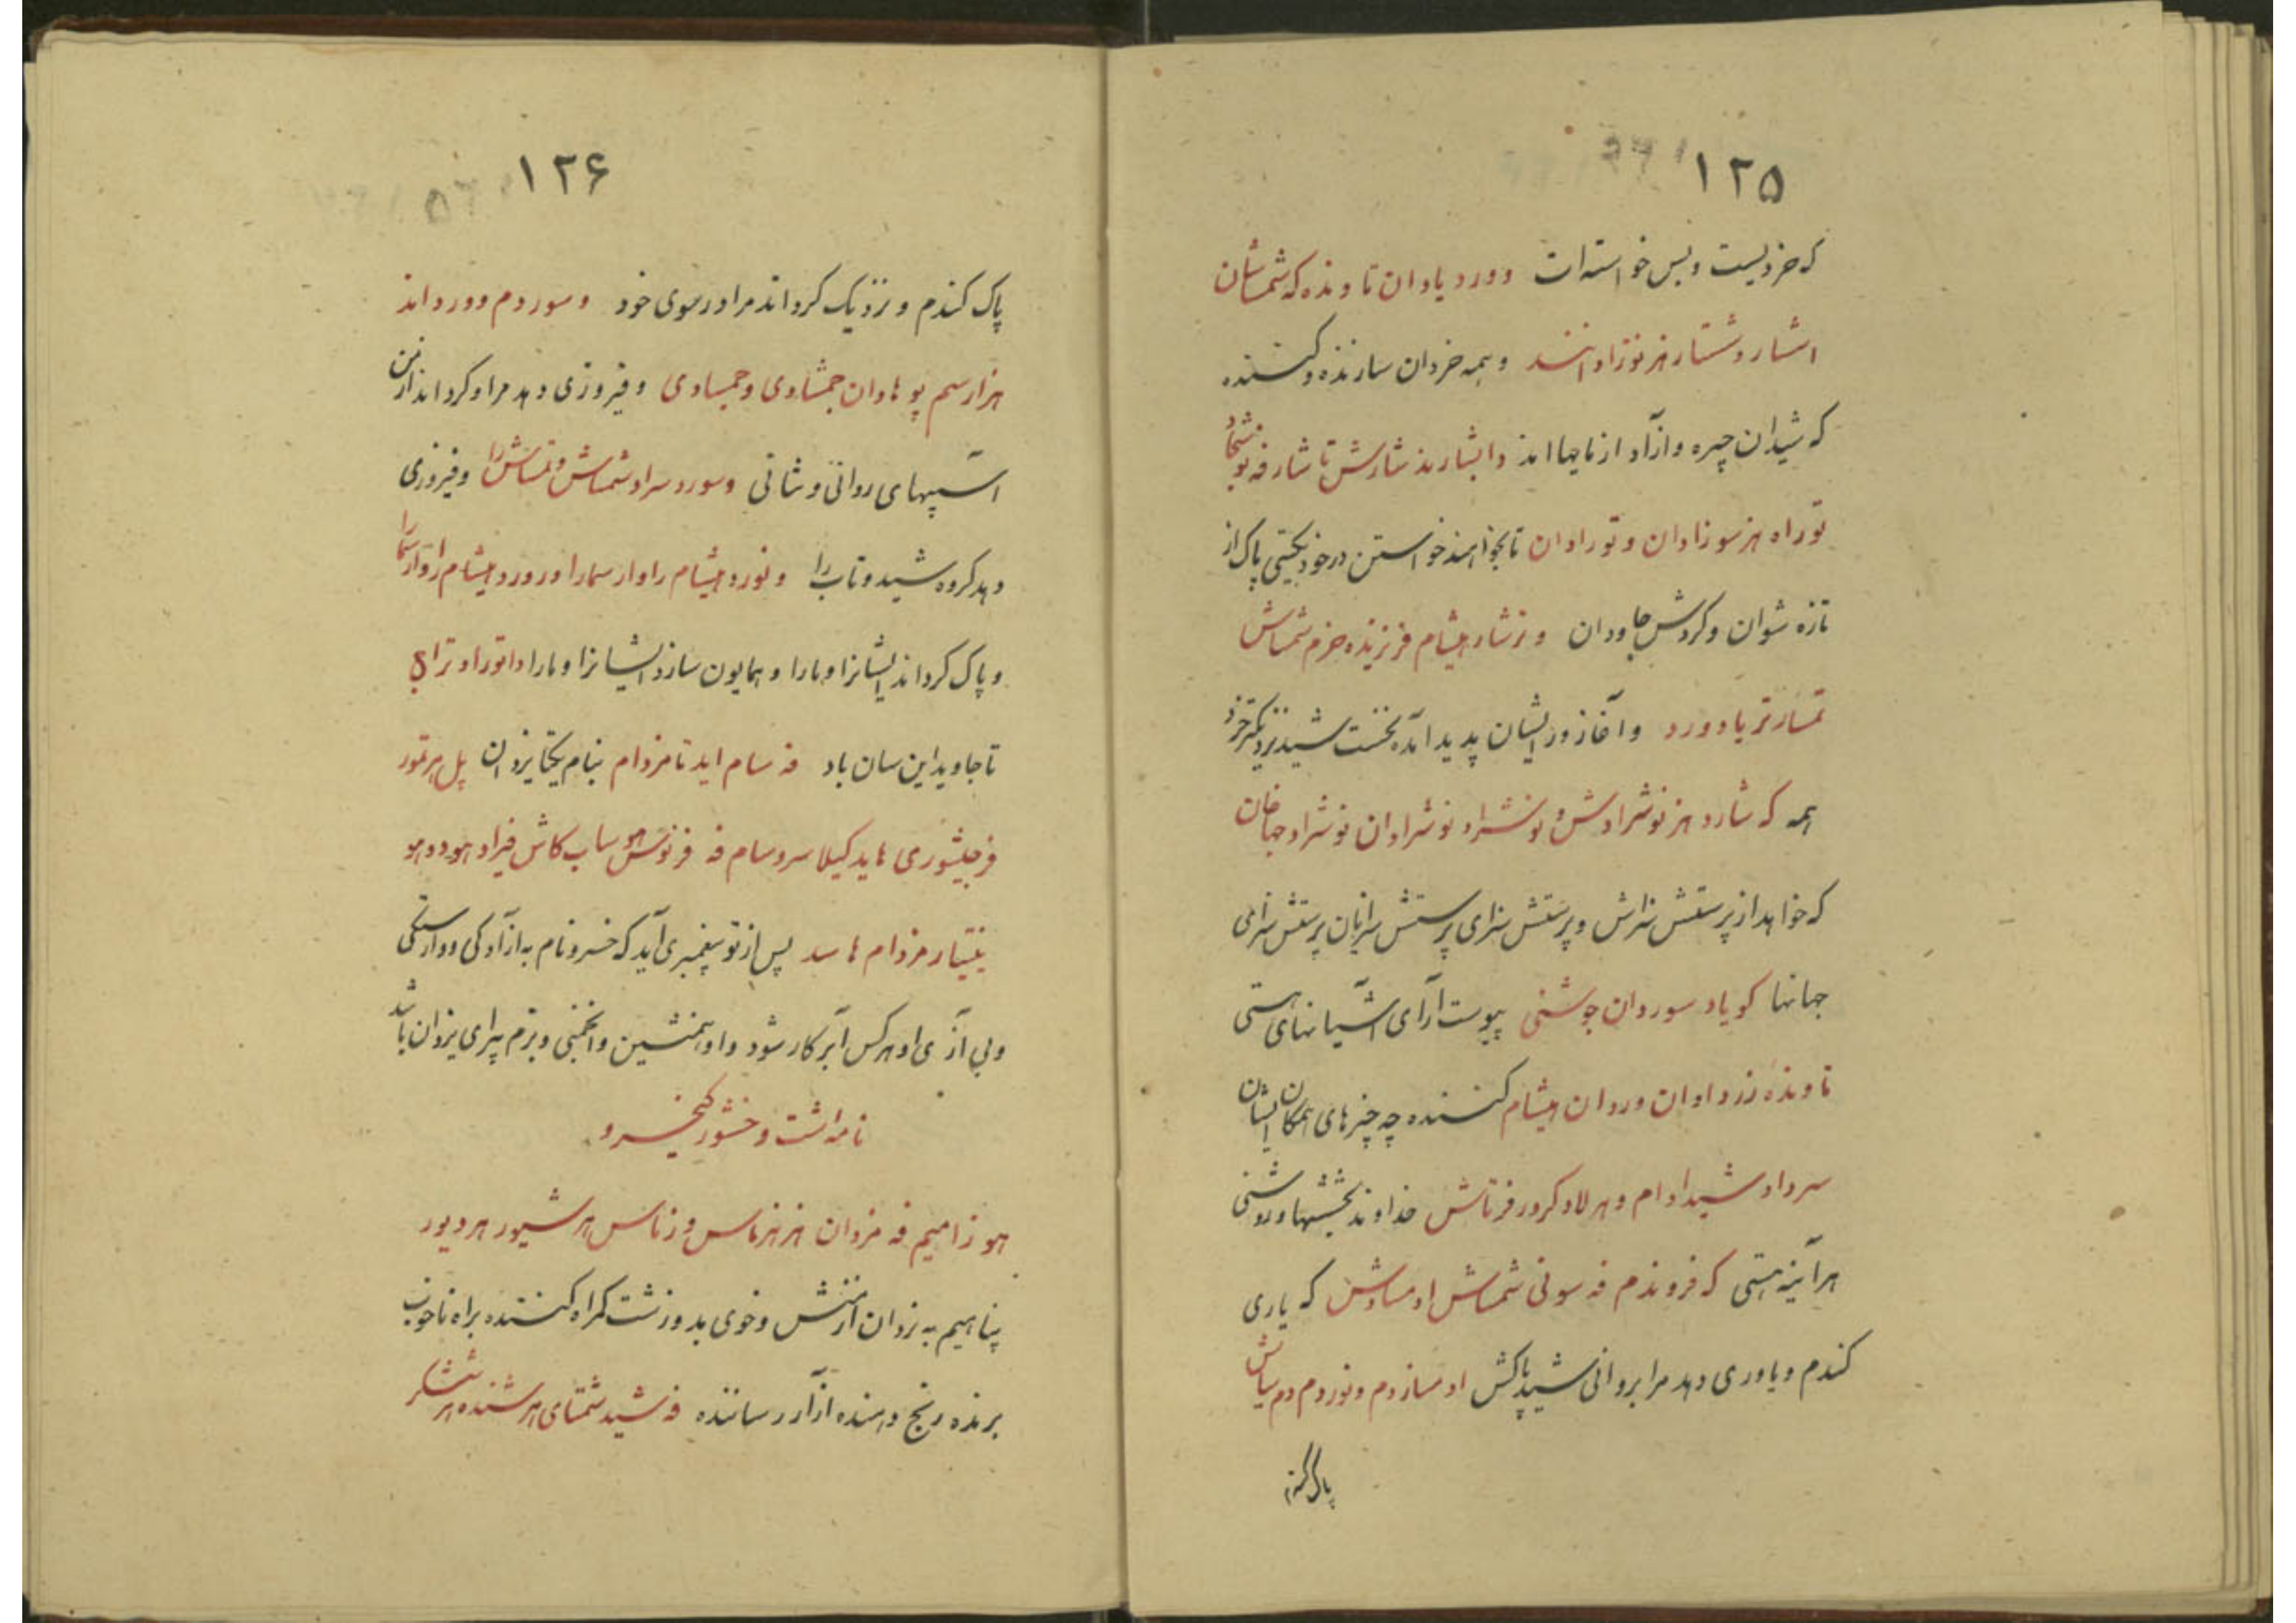 ۱۲۵
که خردیست و بس خواسته ات وورد یاوان تاونده که شمساشان
اشار و شتار هنر نوزاد انند و همه خردان سازنده و کننده
که شیدان چیره و ازآد از مایها اند وابشارند شارش تا شار فه
توراه هنر سوزادان و توراوان تابخواهند خواستن درخود یکتیی پاک از
تازه شوان و گردش جاودان و نرشار هیشام فرزیذه خرم شمساش
تمسار تر یاد ورد و آغاز ور ایشان پدید آمده نخست شید نزدیکتر خرد
همه که شارد هنر نوشرادش و نوشراد نوشرادان نوشراد جهاخان
که خواهد از پرستش سزاش و پرستش سزای پرستش سزایان پرستش سزامی
جهانها کویاد سوردان چوشنی پیوست آرای آشیانهای هستی
تاونده زردادان وردان هیشام کننده چه چیزهای همکان ایشان
سرداد شیدادام و هر لاد کرور فرتاش خداوند بخششها و روشنی
هرآینه هستی که فروندم فه سونی شمساش او مساوش که یاری
کندم و یاوری دهد مرا بروانی شید پاکش او مسازدم و نوردم دم سیاش
پاک کندم
۱۲۶
پاک کندم و نزدیک گرداند مرا در سوی خود و سوردم وورداند
هزار سم پوهاوان جمشادی و جمسادی و فیروزی دهد مرا و گرداند از من
آسیبهای روانی و تنانی و سورد سراد شمساش و تمساش را و فیروزی
دهد گروه شید و تاب را و نورد هیشام را و ارسمارا و رورد هیشام را و ارسمارا
و پاک گرداند ایشانرا و مارا و همایون سازد ایشانرا و مارا دانوراد ترای
تا جاوید این سان باد فه سام اید تا مزدام بنام یکتا یزدان پل هر تمور
فرجیشوری هاید کیلا سرو سام فه فرنوش هو ساب کاش فیراد هود و هو
ینتیار مزدام ها سد پس از تو پیغمبری آید که خسرو نام به ازآدگی و وارستگی
و بی آزی او هرکس آبر کار شود و او همنشین و انجمنی و بزم پیرای یزدان باشد
نامه شت وخشور کیخسرو
هو زامیم فه مزدان هنر هنرماس و زماس هر شیور هر دیور
پناهیم به یزدان از منش و خوی بد و زشت گمراه کننده براه ناخوب
برنده رنج دهنده ازآر رساننده فه شید شمتای هر شنده هر ششگر